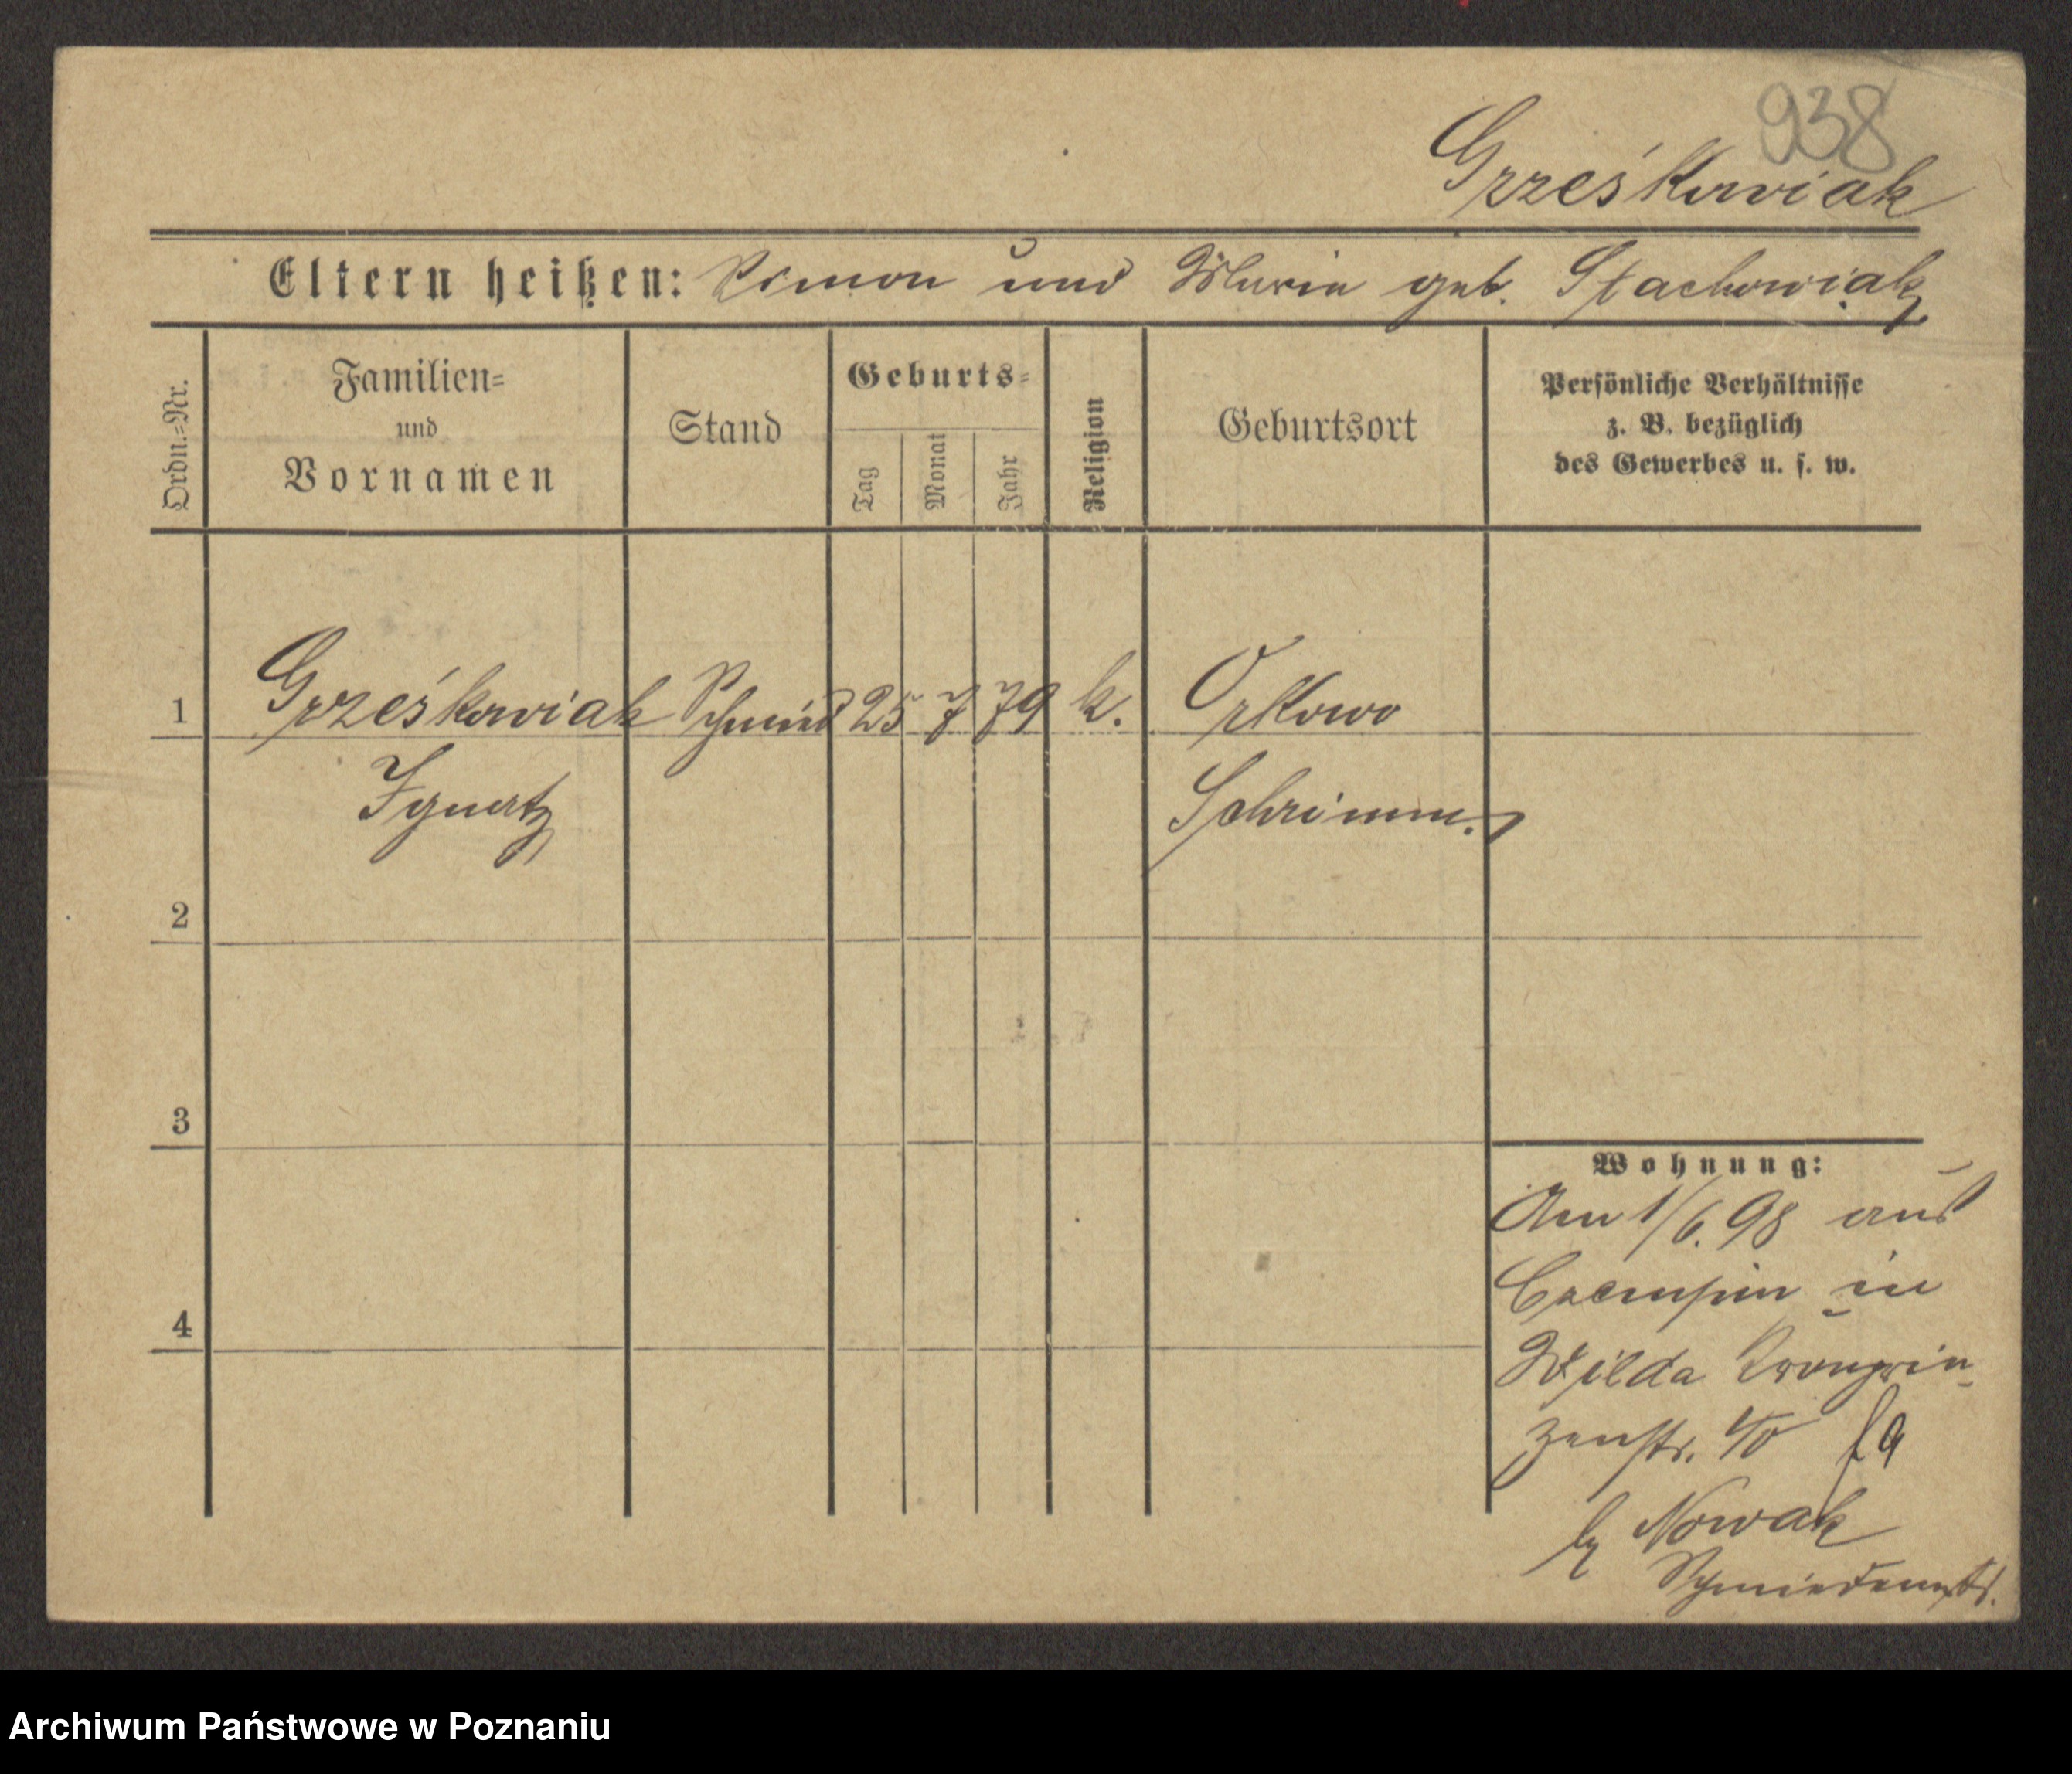 938
Grześkowiak
Eltern heißen: Simon und Marie geb. Stachowiak
Ordn.-Nr.
Familien-
und
Vornamen
Stand
Geburts-
Tag
Monat
Jahr
Religion
Geburtsort
Persönliche Verhältnisse
z. B. bezüglich
des Gewerbes u. s. w.
1 Grześkowiak Schmied 25 7 79 k. Orkowo
Ignatz Schrimm.
2
3
4
Wohnung:
Am 1/6. 98 aus
Czempin in
Wilda Kronprin-
zenstr. 40
b/ Nowak
Archiwum Państwowe w Poznaniu